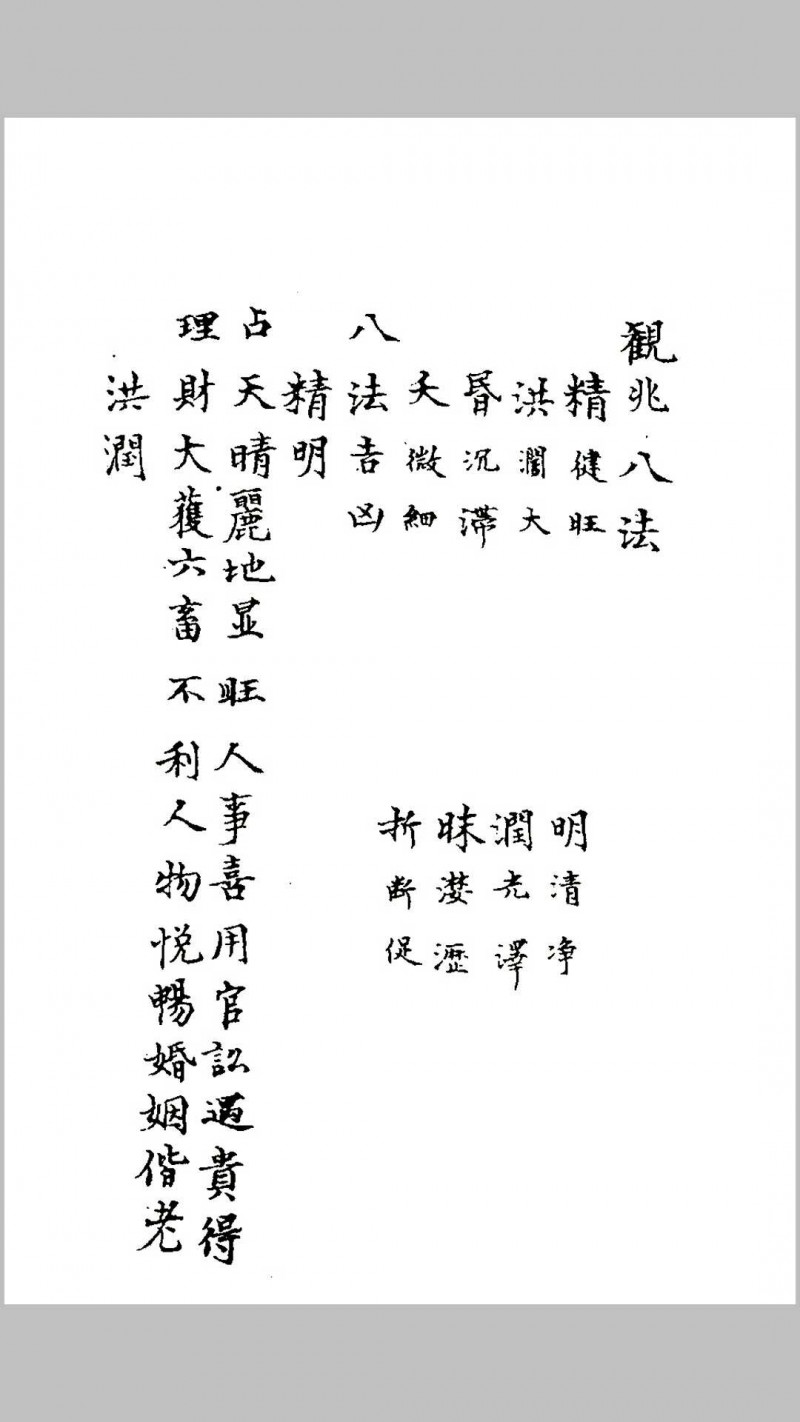 觀兆八法
精健旺　明清净
洪潤大　潤光澤
昏沉滞　昧漤瀝
夭微細　折断促
八法吉凶
精明
占天晴麗地显旺人事喜用官訟遇貴得
理財大獲六畜不利人物悦暢婚姻偕老
洪潤